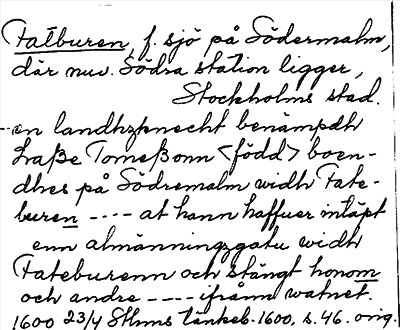 Fatburen, f. sjö på Södermalm,
där nuv. Södra station ligger,
Stockholms stad.
-- en landhzknecht benämpdh
Laße Tomeßonn <född> boen-
dhes på Södremalm widh Fate-
buren ---- at hann haffuer intäpt
enn almänningzgatu widh
Fateburenn och stängt honom
och andre ---- ifrånn watnet.
1600 23/4 Sthms tänkeb. 1600, s. 46. orig.